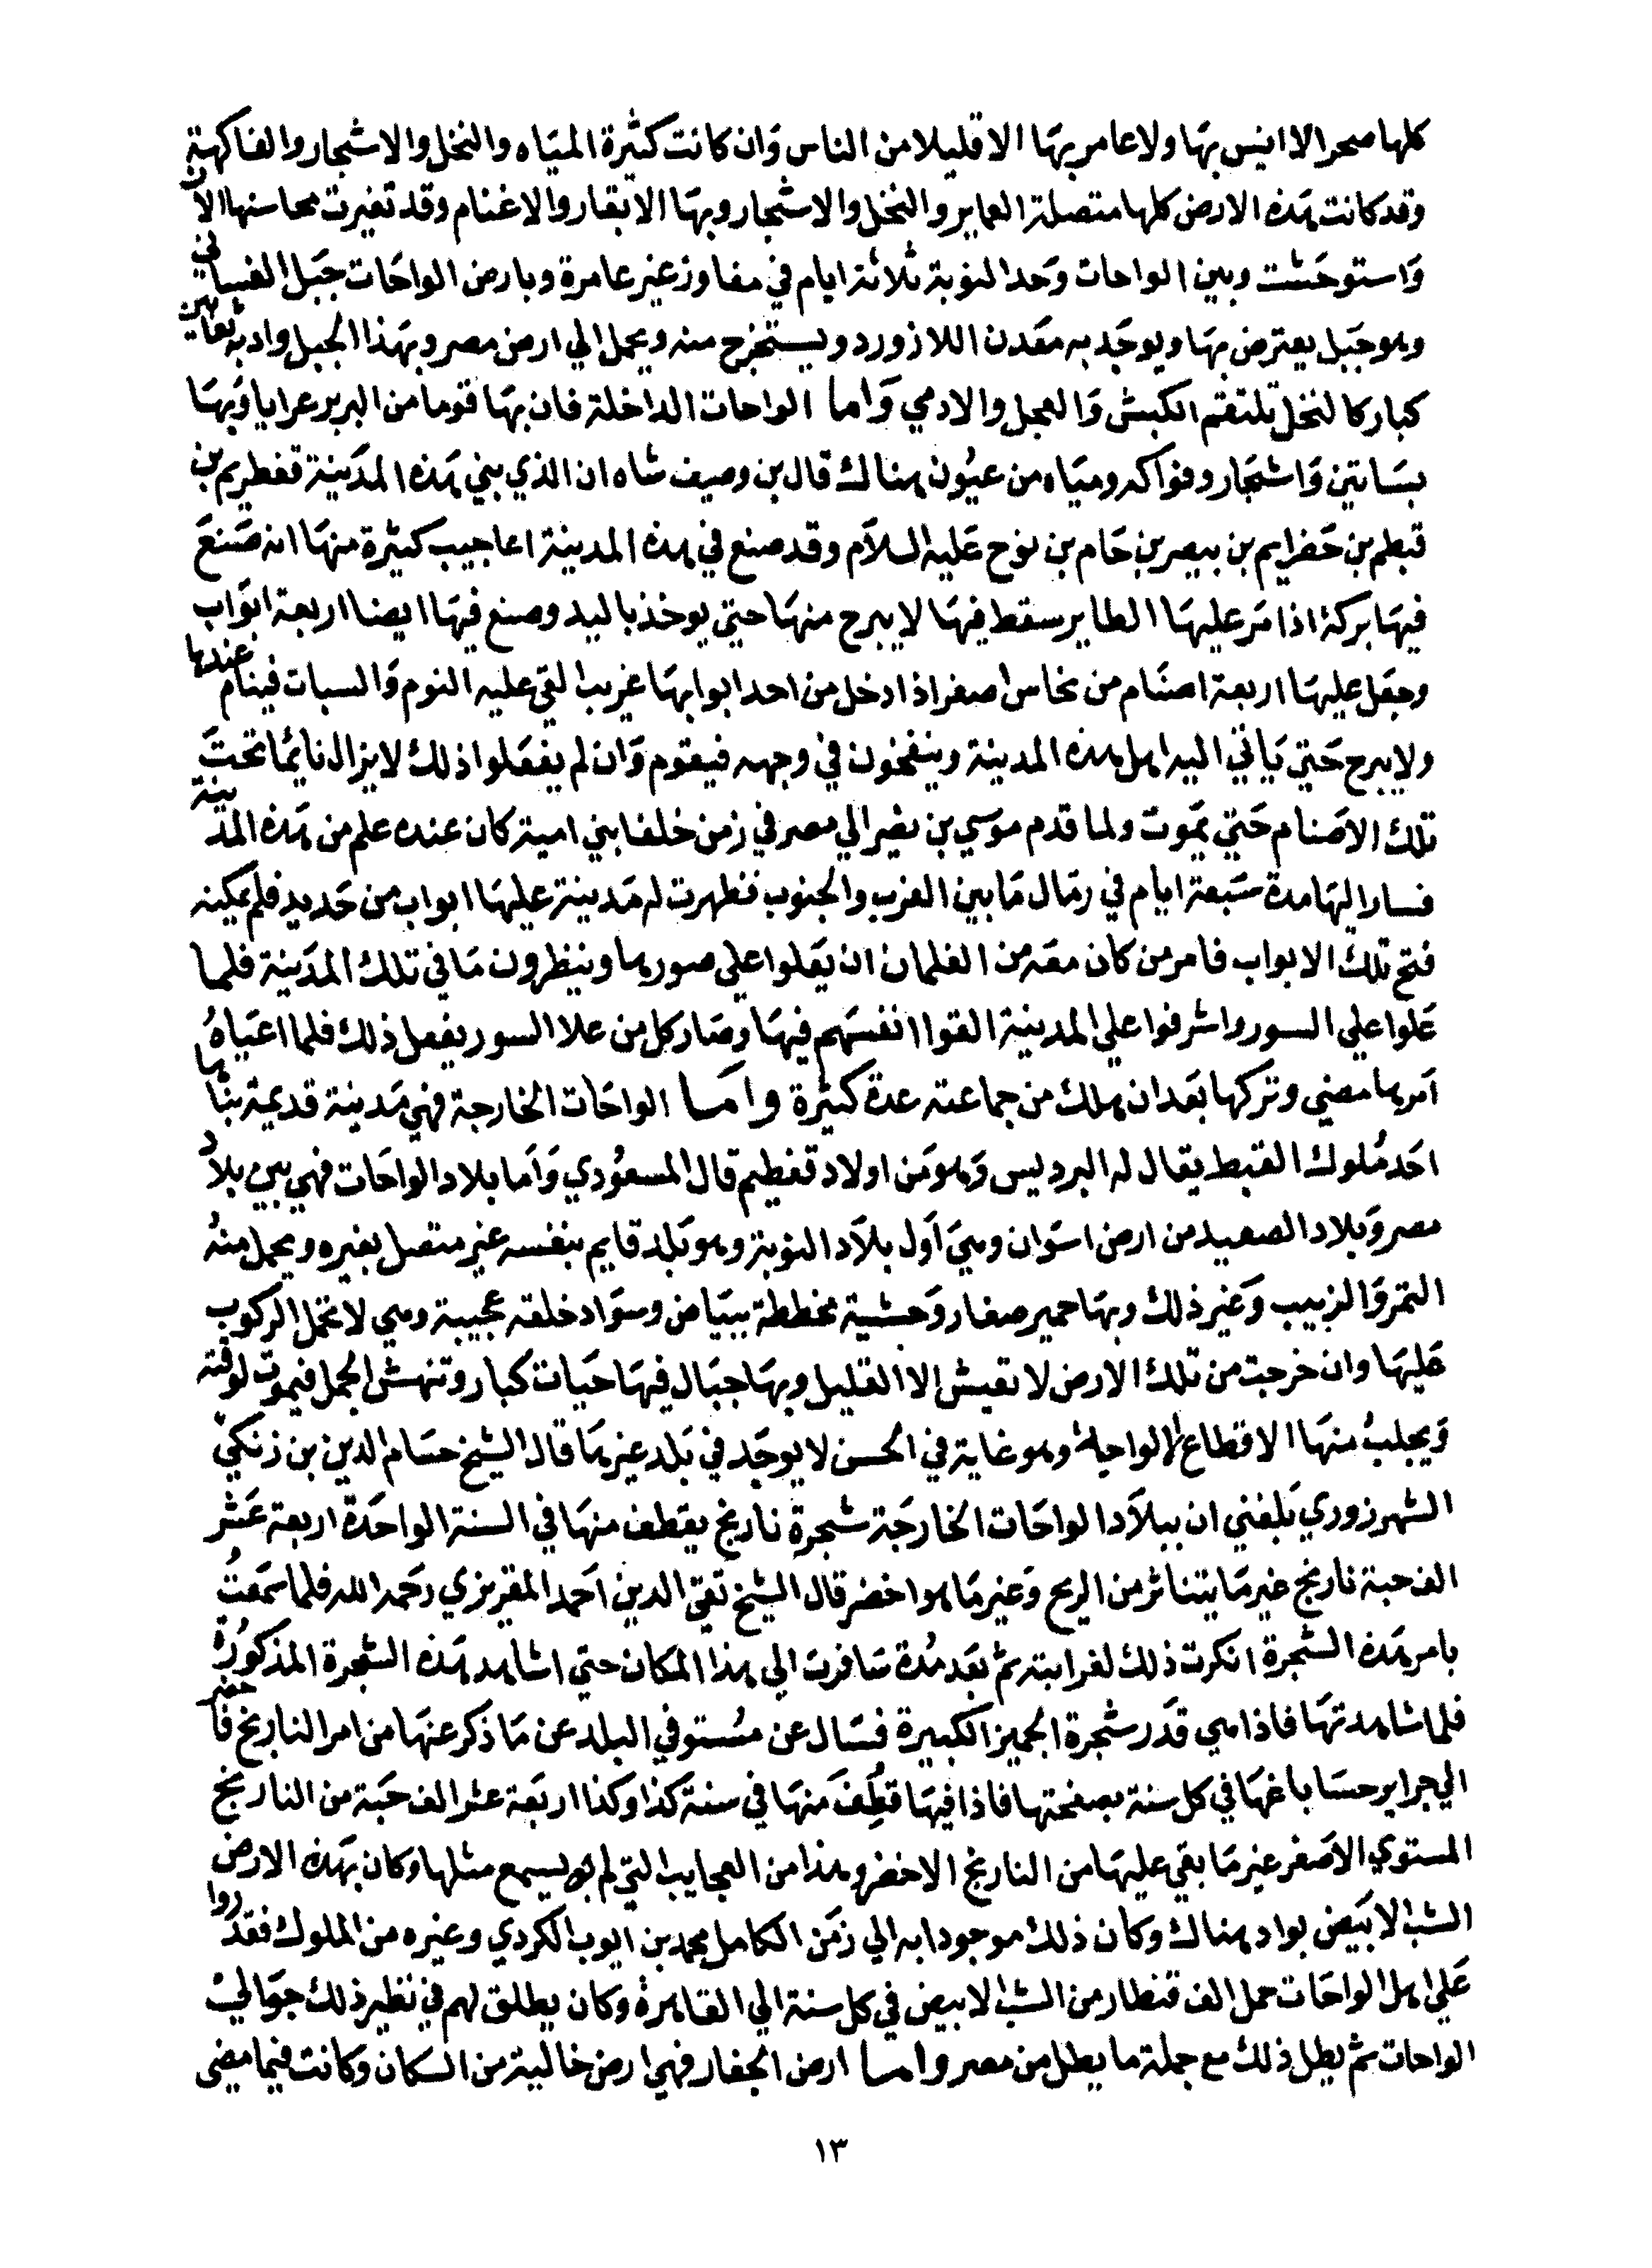 كلها صحرا لا انيس بها ولا عامر بها الا قليلا من الناس وان كانت كثيرة المياه والنخل والاشجار والفاكهة
وقد كانت هذه الارض كلها متصلة العماير والنخل والاشجار وبها الابقار والاغنام وقد تغيرت محاسنها الان
واستوحشت وبين الواحات وحد النوبة ثلاثة ايام في مفاوز غير عامرة وبارض الواحات جبل الغساني
وهو جبل يعترض بها ويوجد به معدن اللازورد ويستخرج منه ويحمل الي ارض مصر وبهذا الجبل واد به ثعابين
كبار كالنخل تلتقم الكبش والعجل والادمي واما الواحات الداخلة فان بها قوما من البربر عرايا وبها
بساتين واشجار وفواكه ومياه من عيون هناك قال بن وصيف شاه ان الذي بني هذه المدينة قفطريم بن
قبطم بن حفرايم بن بيصر بن حام بن نوح عليه السلام وقد صنع في هذه المدينة اعاجيب كثيرة منها انه صنع
فيها بركة اذا مر عليها الطاير سقط فيها لا يبرح منها حتي يوخذ باليد وصنع فيها ايضا اربعة ابواب
وجعل عليها اربعة اصنام من نحاس اصفر اذا دخل من احد ابوابها غريب القي عليه النوم والسبات فينام عندها
ولا يبرح حتي ياتي اليه اهل هذه المدينة وينفخون في وجهه فيقوم وان لم يفعلوا ذلك لا يزال نايما تحت
تلك الاصنام حتي يموت ولما قدم موسي بن نصير الي مصر في زمن خلفا بني امية كان عنده علم من هذه المدينة
فسار اليها مدة سبعة ايام في رمال ما بين الغرب والجنوب فظهرت له مدينة عليها ابواب من حديد فلم يمكنه
فتح تلك الابواب فامر من كان معه من الغلمان ان يعلوا علي صورها وينظرون ما في تلك المدينة فلما
علوا علي السور واشرفوا علي المدينة القوا انفسهم فيها وصار كل من علا السور يفعل ذلك فلما اعياه
امرها مضي وتركها بعد ان هلك من جماعته عدة كثيرة واما الواحات الخارجة فهي مدينة قديمة بناها
احد ملوك القبط يقال له البردليس وهو من اولاد قفطيم قال المسعودي واما بلاد الواحات فهي بين بلاد
مصر وبلاد الصعيد من ارض اسوان وهي اول بلاد النوبة وهو بلد قايم بنفسه غير متصل بغيره ويحمل منه
التمر والزبيب وغير ذلك وبها حمير صغار وحشية مخططة ببياض وسواد خلقه عجيبة وهي لا تحمل الركوب
عليها وان خرجت من تلك الارض لا تعيش الا القليل وبها جبال فيها حيات كبار وتنهش الجمل فيموت لوقته
ويجلب منها الاقطاع الواحية وهو غاية في الحسن لا يوجد في بلد غيرها قال الشيخ حسام الدين بن زنكي
الشهرزوري بلغني ان ببلاد الواحات الخارجة شجرة نارنج يقطف منها في السنة الواحدة اربعة عشر
الف حبة نارنج غير ما يتناثر من الريح وغير ما هو اخضر قال الشيخ تقي الدين احمد المقريزي رحمه الله فلما سمعت
بامر هذه الشجرة انكرت ذلك لغرابته ثم بعد مدة سافرت الي هذا المكان حتي اشاهد هذه الشجرة المذكورة
فلما شاهدتها فاذا هي قدر شجرة الجميز الكبيرة فسال عن مستوفي البلد عن ما ذكر عنها من امر النارنج فاحضر
الي جرايد حسابا عنها في كل سنة بصفحتها فاذا فيها قطف منها في سنة كذا وكذا اربعة عشر الف حبة من النارنج
المستوي الاصفر غير ما بقي عليها من النارنج الاخضر وهذا من العجايب التي لم يسمع مثلها وكان بهذه الارض
الشب الابيض بواد هناك وكان ذلك موجودا به الي زمن الكامل محمد بن ايوب الكردي وغيره من الملوك فقدروا
علي اهل الواحات حمل الف قنطار من الشب الابيض في كل سنة الي القاهرة وكان يطلق لهم في نظير ذلك جوالي
الواحات ثم بطل ذلك مع جملة ما بطل من مصر واما ارض الجفار فهي ارض خالية من السكان وكانت فيما مضى
١٣